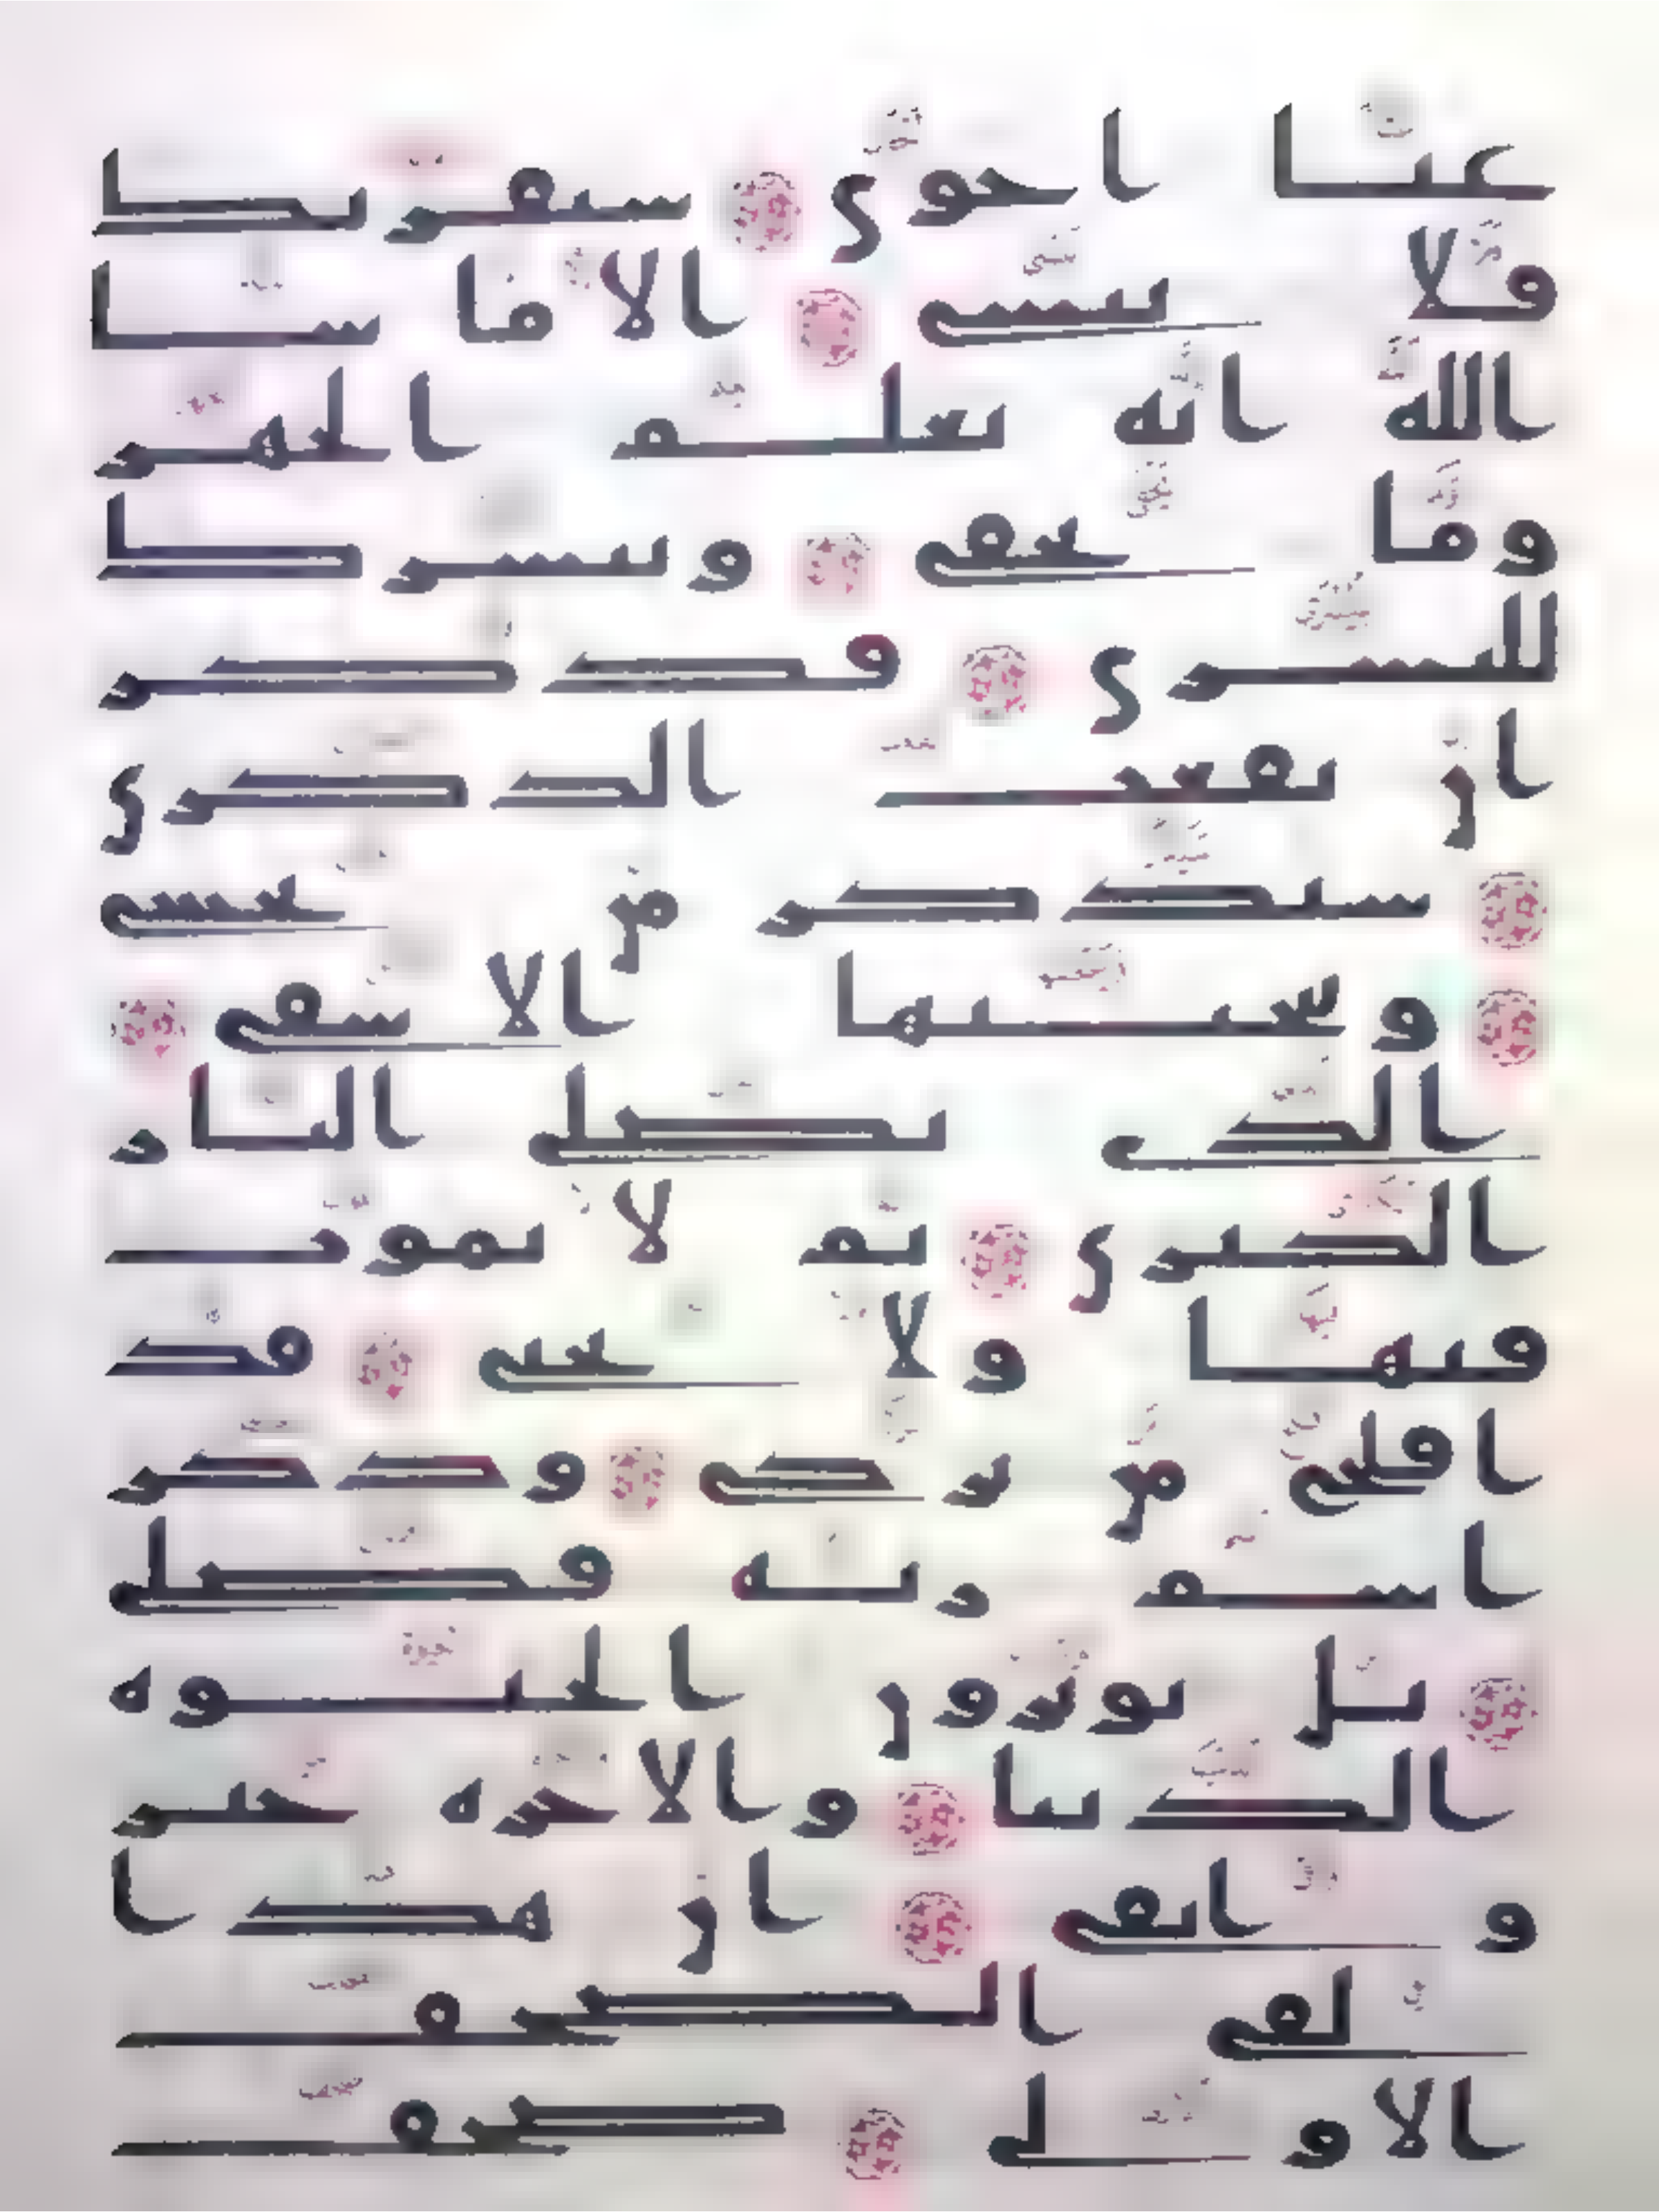 غثا احوى سنقريك
فلا تنسى الا ما شا
الله انه يعلم الجهر
وما يخفى ونيسرك
لليسرى فذكر
ان نفعت الذكرى
سيذكر من يخشى
ويتجنبها الاشقى
الذى يصلى النار
الكبرى ثم لا يموت
فيها ولا يحيى قد
افلح من تزكى وذكر
اسم ربه فصلى
بل توثرون الحيوه
الدنيا والاخره خير
وابقى ان هذا
لفى الصحف
الاولى صحف